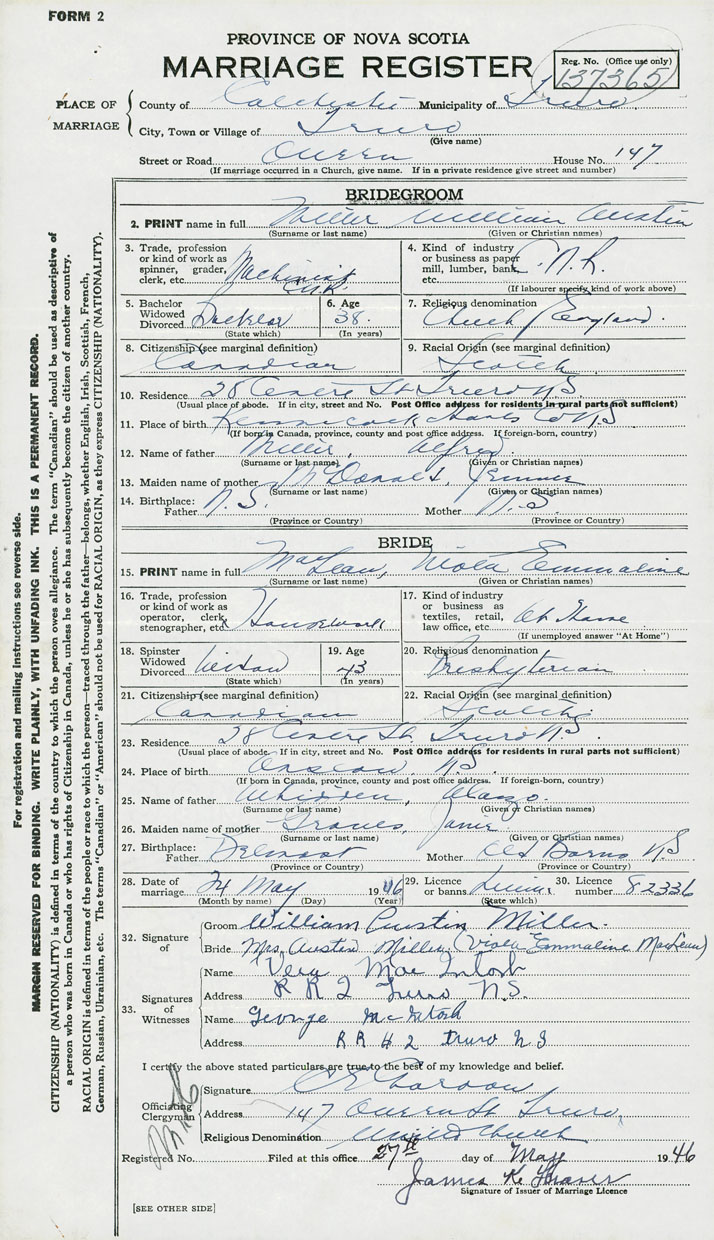 FORM 2
PROVINCE OF NOVA SCOTIA
MARRIAGE REGISTER
Reg. No. (Office use only)
137365
PLACE OF MARRIAGE
County of Colchester Municipality of Truro
City, Town or Village of Truro
(Give name)
Street or Road Queen House No. 147
(If marriage occurred in a Church, give name. If in a private residence give street and number)
BRIDEGROOM
2. PRINT name in full Miller William Austin
(Surname or last name) (Given or Christian names)
3. Trade, profession or kind of work as spinner, grader, clerk, etc. Machinist C.N.R.
4. Kind of industry or business as paper mill, lumber, bank, etc. C.N.R.
(If labourer specify kind of work above)
5. Bachelor Widowed Divorced Bachelor
(State which)
6. Age 38
(In years)
7. Religious denomination Church England.
8. Citizenship (see marginal definition) Canadian
9. Racial Origin (see marginal definition) Scotch
10. Residence 28 Centre St Truro N.S
(Usual place of abode. If in city, street and No. Post Office address for residents in rural parts not sufficient)
11. Place of birth Kennetcook Hants Co N.S
(If born in Canada, province, county and post office address. If foreign-born, country)
12. Name of father Miller, Alfred
(Surname or last name) (Given or Christian names)
13. Maiden name of mother McDonald,
(Surname or last name) (Given or Christian names)
14. Birthplace: Father N.S. Mother N.S.
(Province or Country) (Province or Country)
BRIDE
15. PRINT name in full MacLean, Viola Emmaline
(Surname or last name) (Given or Christian names)
16. Trade, profession or kind of work as operator, clerk, stenographer, etc. Housework
17. Kind of industry or business as textiles, retail, law office, etc. At Home
(If unemployed answer "At Home")
18. Spinster Widowed Divorced Widow
(State which)
19. Age 43
(In years)
20. Religious denomination Presbyterian
21. Citizenship (see marginal definition) Canadian
22. Racial Origin (see marginal definition) Scotch
23. Residence 28 Centre St. Truro N.S.
(Usual place of abode. If in city, street and No. Post Office address for residents in rural parts not sufficient)
24. Place of birth Onslow N.S.
(If born in Canada, province, county and post office address. If foreign-born, country)
25. Name of father Whidden, Alonzo.
(Surname or last name) (Given or Christian names)
26. Maiden name of mother Graves, Janie
(Surname or last name) (Given or Christian names)
27. Birthplace: Father Belmont Mother Old Barns N.S
(Province or Country) (Province or Country)
28. Date of marriage 24 May 1946
(Month by name) (Day) (Year)
29. Licence or banns License
(State which)
30. Licence number 82336
32. Signature of
Groom William Austin Miller.
Bride Mrs. Austin Miller (Viola Emmaline MacLean)
33. Signatures of Witnesses
Name Vera MacIntosh
Address R R 2 Truro N.S.
Name George McIntosh
Address R R # 2 Truro N S
I certify the above stated particulars are true to the best of my knowledge and belief.
Officiating Clergyman
Signature
Address 147 Queen St Truro,
Religious Denomination United Church
Registered No. Filed at this office 27th day of May 1946
James K. Fraser
Signature of Issuer of Marriage Licence
[SEE OTHER SIDE]
For registration and mailing instructions see reverse side.
MARGIN RESERVED FOR BINDING. WRITE PLAINLY, WITH UNFADING INK. THIS IS A PERMANENT RECORD.
CITIZENSHIP (NATIONALITY) is defined in terms of the country to which the person owes allegiance. The term "Canadian" should be used as descriptive of
a person who was born in Canada or who has rights of Citizenship in Canada, unless he or she has subsequently become the citizen of another country.
RACIAL ORIGIN is defined in terms of the people or race to which the person—traced through the father—belongs, whether English, Irish, Scottish, French,
German, Russian, Ukrainian, etc. The terms "Canadian" or "American" should not be used for RACIAL ORIGIN, as they express CITIZENSHIP (NATIONALITY).